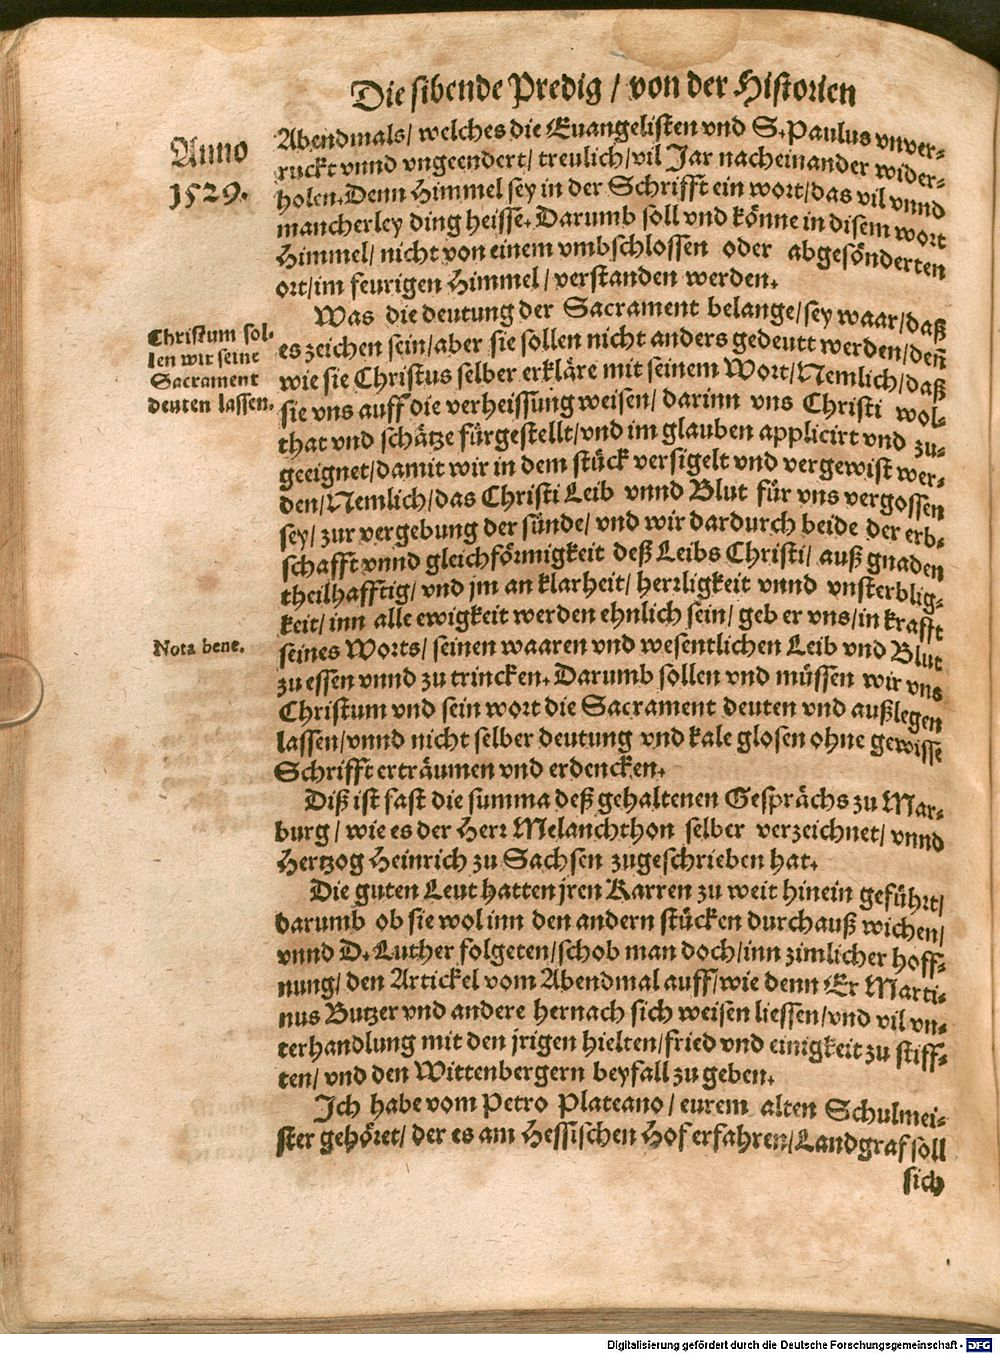 Die sibende Predig / von der Historien
Anno
1529.
Abendmals / welches die Euangelisten vnd S. Paulus vnver-
ruckt vnnd vngeendert / treulich / vil Jar nacheinander wider-
holen. Denn Himmel sey in der Schrifft ein wort / das vil vnnd
mancherley ding heisse. Darumb soll vnd könne in disem wort
Himmel / nicht von einem vmbschlossen oder abgesönderten
ort / im feurigen Himmel / verstanden werden.
Was die deutung der Sacrament belange / sey waar / daß
es zeichen sein / aber sie sollen nicht anders gedeutt werden / deñ
wie sie Christus selber erkläre mit seinem Wort / Nemlich / daß
sie vns auff die verheissung weisen / darinn vns Christi wol-
that vnd schätze fürgestellt / vnd im glauben applicirt vnd zu-
geeignet / damit wir in dem stück versigelt vnd vergewist wer-
den / Nemlich / das Christi Leib vnnd Blut für vns vergossen
sey / zur vergebung der sünde / vnd wir dardurch beide der erb-
schafft vnnd gleichförmigkeit deß Leibs Christi / auß gnaden
theilhafftig / vnd jm an klarheit / herrligkeit vnnd vnsterblig-
keit / inn alle ewigkeit werden ehnlich sein / geb er vns / in krafft
seines Worts / seinen waaren vnd wesentlichen Leib vnd Blut
zu essen vnnd zu trincken. Darumb sollen vnd müssen wir vns
Christum vnd sein wort die Sacrament deuten vnd außlegen
lassen / vnnd nicht selber deutung vnd kale glosen ohne gewisse
Schrifft erträumen vnd erdencken.
Christum sol-
len wir seine
Sacrament
deuten lassen.
Nota bene.
Diß ist fast die summa deß gehaltenen Gesprächs zu Mar-
burg / wie es der Herr Melanchthon selber verzeichnet / vnnd
Hertzog Heinrich zu Sachsen zugeschrieben hat.
Die guten Leut hatten jren Karren zu weit hinein geführt /
darumb ob sie wol inn den andern stücken durchauß wichen /
vnnd D. Luther folgeten / schob man doch / inn zimlicher hoff-
nung / den Artickel vom Abendmal auff / wie denn Er Marti-
nus Butzer vnd andere hernach sich weisen liessen / vnd vil vn-
terhandlung mit den jrigen hielten / fried vnd einigkeit zu stiff-
ten / vnd den Wittenbergern beyfall zu geben.
Ich habe vom Petro Plateano / eurem alten Schulmei-
ster gehöret / der es am Hessischen Hof erfahren / Landgraf soll
sich
Digitalisierung gefördert durch die Deutsche Forschungsgemeinschaft - DFG